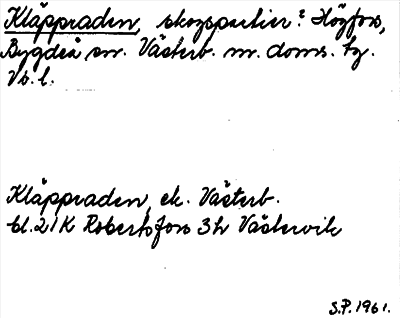 Kläppraden, skogspartier? Högfors,
Bygdeå sn. Västerb. m. doms. tg.
Vb. l.
Kläppraden, ek. Västerb.
bl. 21K Robertsfors 3h Västervik
S.P. 1961.